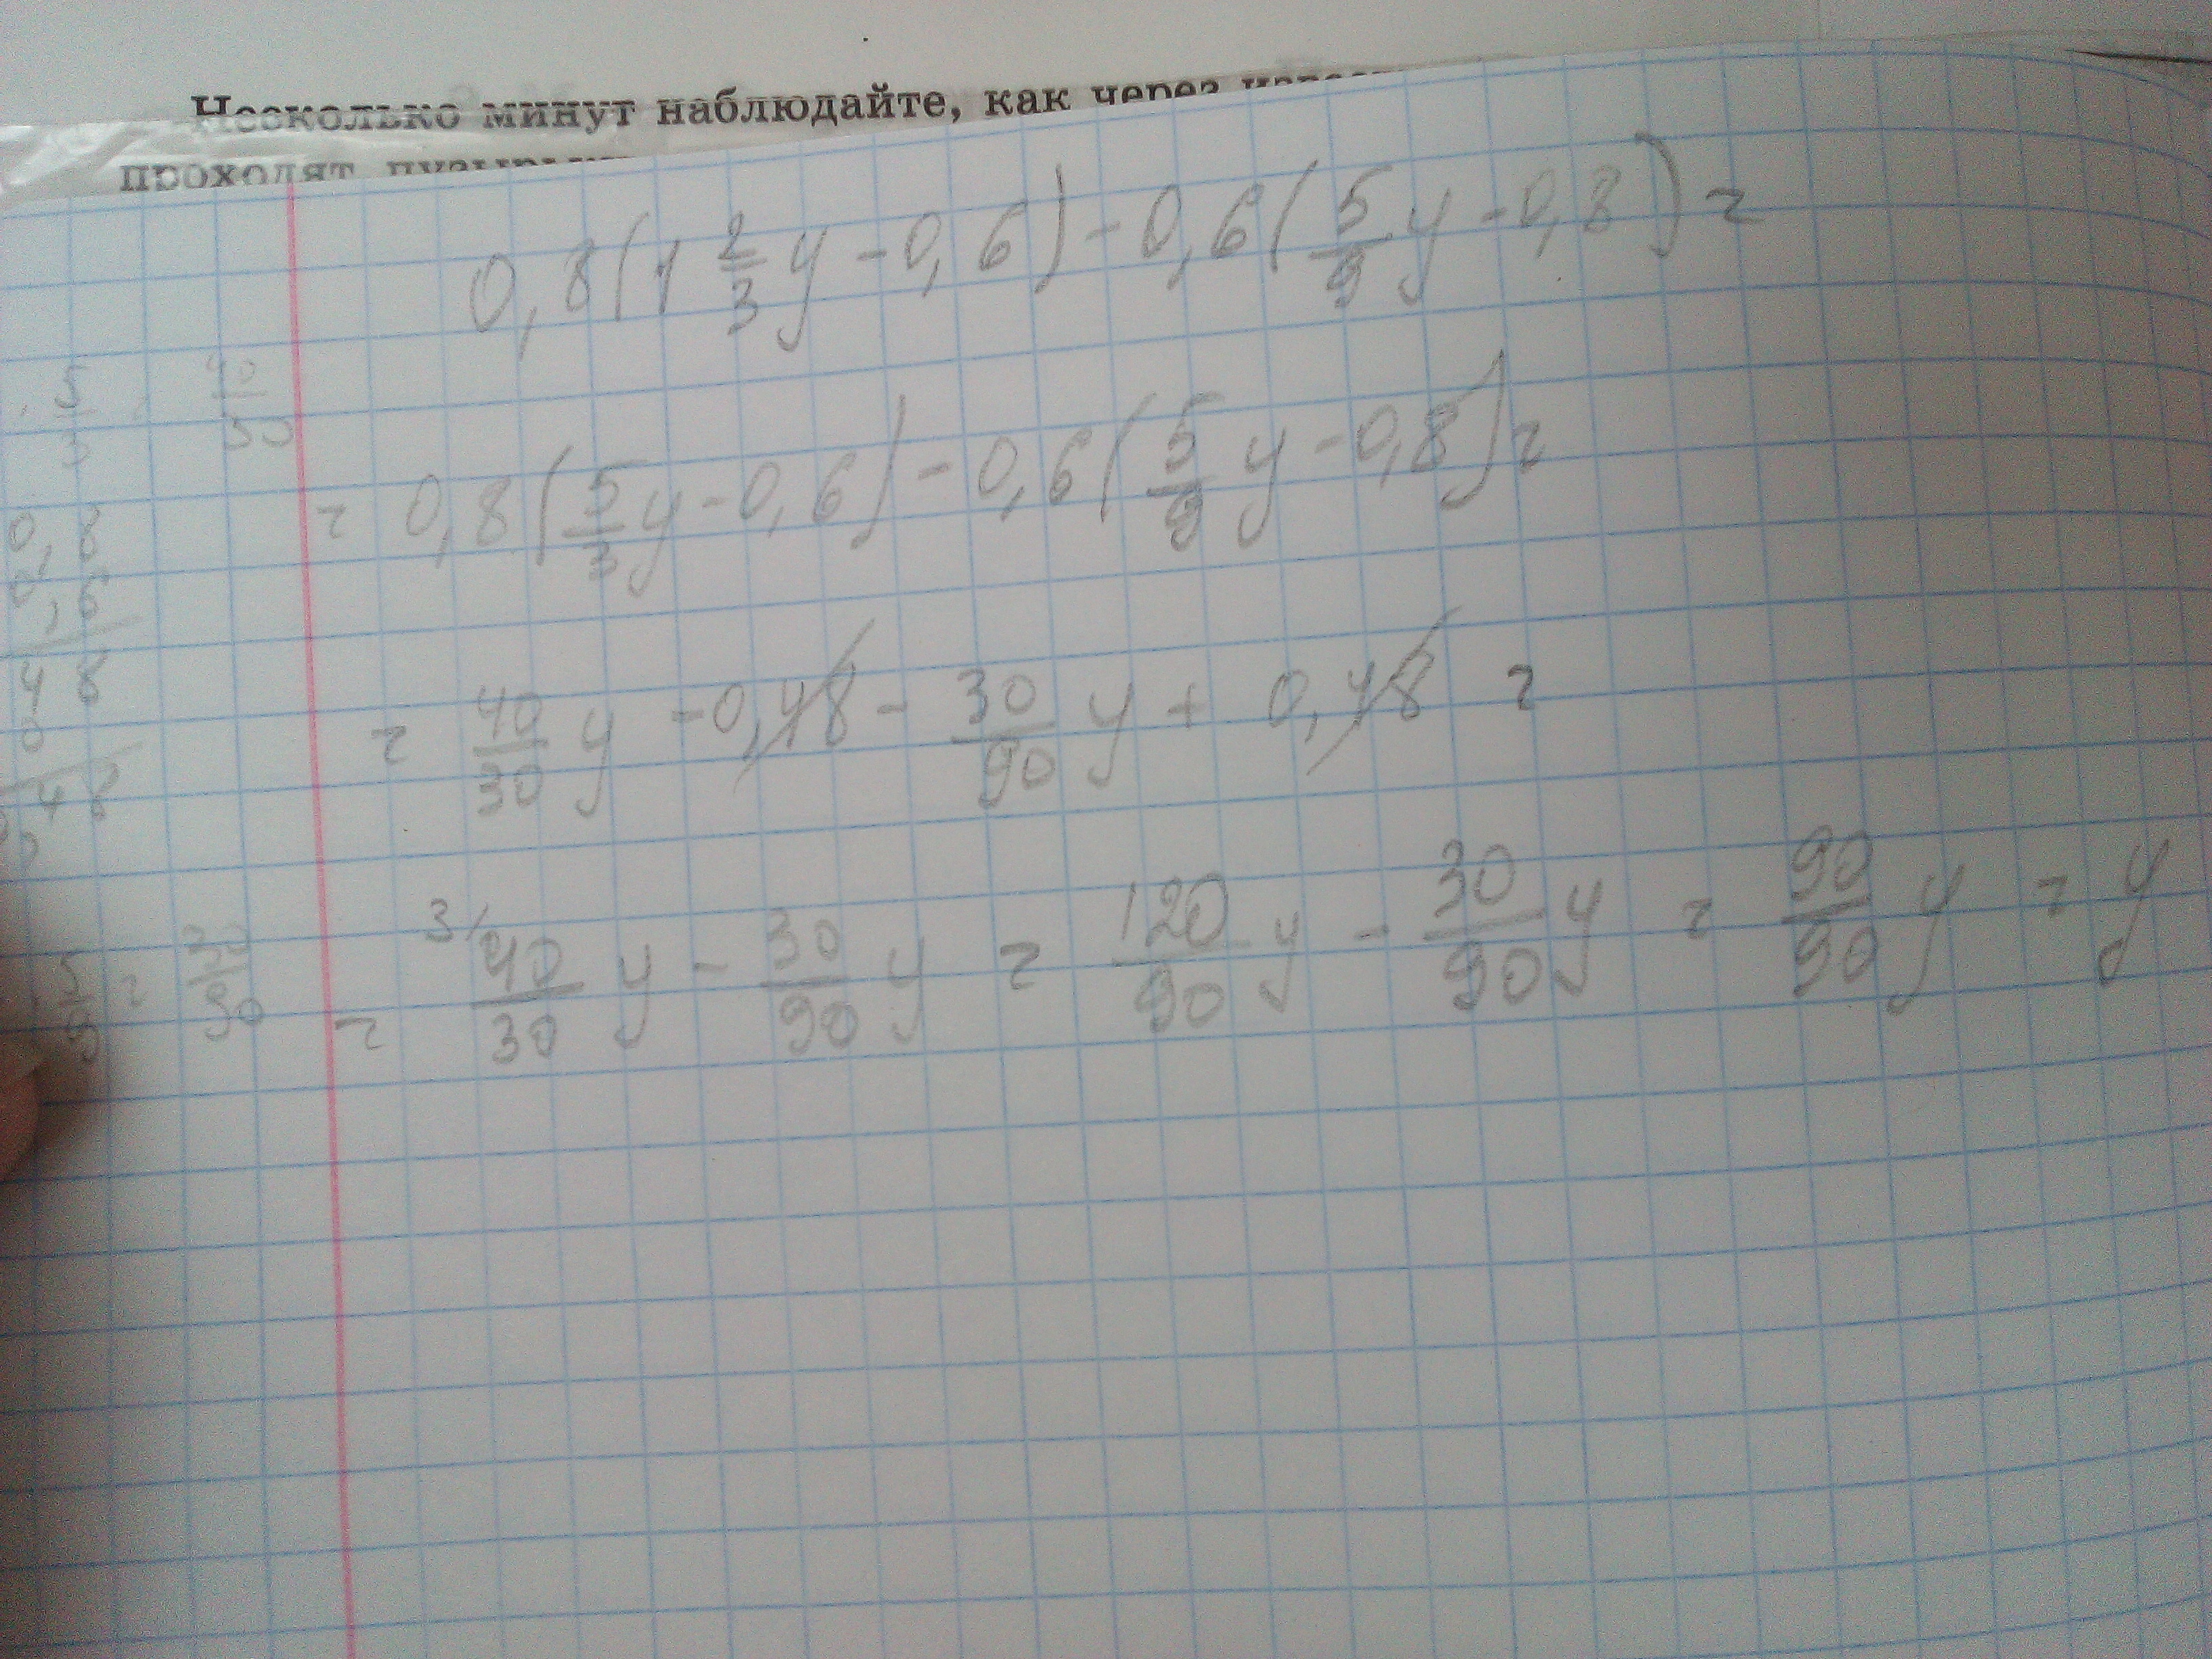 Несколько минут наблюдайте, как через
проходят
0,8(1 2/3 y - 0,6) - 0,6(5/9 y - 0,8) =
= 0,8(5/3 y - 0,6) - 0,6(5/9 y - 0,8) =
= 40/30 y - 0,48 - 30/90 y + 0,48 =
= 3/ 40/30 y - 30/90 y = 120/90 y - 30/90 y = 90/90 y = y
5/3
0,8
0,6
48
0
48
5/9 = 30/90